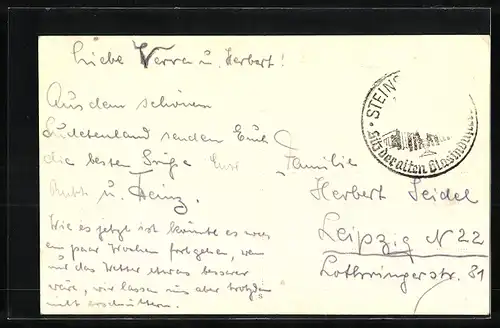 Liebe Verra u. Herbert!
Aus dem schönen
Sudetenland senden Euch
die besten Grüße Eure
u. Heinz.
Wie es jetzt ist könnte es noch
ein paar Wochen fortgehen, wenn
nur das Wetter etwas besserer
wäre, wir lassen uns aber trotzdem
nicht erschüttern.
Familie
Herbert Seidel
Leipzig N 22
Lothringerstr. 81
STEIN
alten Glashütte